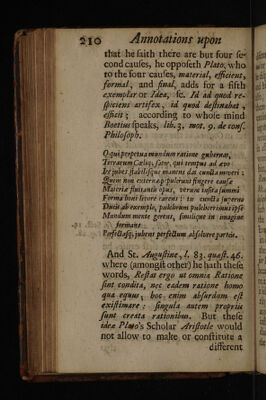 210 Annotations upon
that he saith there are but four se-
cond causes, he opposeth Plato, who
to the four causes, material, efficient,
formal, and final, adds for a fifth
exemplar or Idea, sc. Id ad quod re-
spiciens artifex, id quod destinabat,
efficit; according to whose mind
Boetius speaks, lib. 3. mot. 9. de cons.
Philosoph.
O qui perpetua mundum ratione gubernas,
Terrarum Cælique sator, qui tempus ab ævo
Ire jubes stabilisque manens das cuncta moveri:
Quem non externæ pepulerunt fingere causæ
Materiæ fluitantis opus, verum insita summi
Forma boni livore carens: tu cuncta superno
Ducis ab exemplo, pulchrum pulcherrimus ipse
Mundum mente gerens, similique in imagine
formans
Perfectasq; jubens perfectum absolvere partes.
And St. Augustine, l. 83. quæst. 46.
where (amongst other) he hath these
words, Restat ergo ut omnia Ratione
sint condita, nec eadem ratione homo
qua equus; hoc enim absurdum est
existimare: singula autem propriis
sunt creata rationibus. But these
ideæ Plato's Scholar Aristotle would
not allow to make or constitute a
different